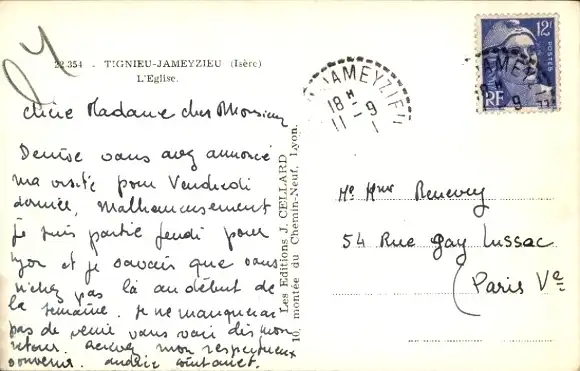 22.354 - TIGNIEU-JAMEYZIEU (Isère)
L'Eglise.
chère Madame cher Monsieur
Denise vous avez annoncé
ma visite pour Vendredi
dernier, malheureusement
je suis partie Jeudi pour
Lyon et je savais que vous
n'étiez pas là au début de
la semaine. Je ne manquerai
pas de venir vous voir dès mon
retour. Recevez mon respectueux
souvenir.
Les Editions J. CELLARD
10, montée du Chemin-Neuf, Lyon.
JAMEYZIEU
18 H
11 - 9
1
12F
POSTES
RF
JAMEYZ
9
54 Rue Gay Lussac
Paris Ve